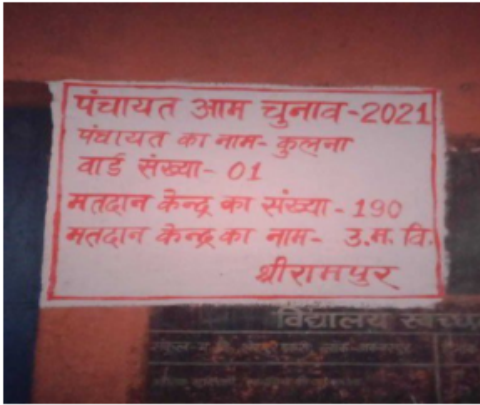 पंचायत आम चुनाव-2021
पंचायत का नाम- कुलना
वार्ड संख्या- 01
मतदान केन्द्र का संख्या - 190
मतदान केन्द्र का नाम- उ.म. वि.
श्रीरामपुर
विद्यालय स्वच्छ